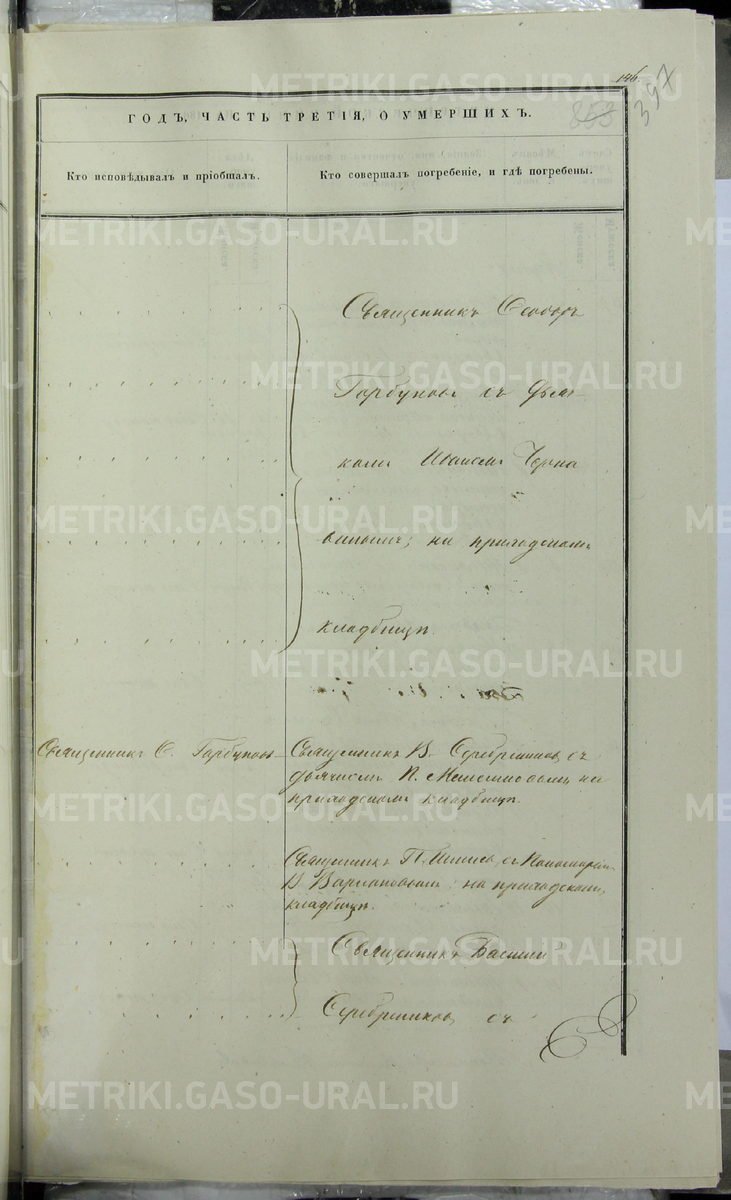 146.
397
ГОДЪ, ЧАСТЬ ТРЕТІЯ, О УМЕРШИХЪ.
Кто исповѣдывалъ и пріобщалъ.
Кто совершалъ погребеніе, и гдѣ погребены.
Священникъ Ѳеодоръ
Горбуновъ съ дьяч-
комъ
на приходскомъ
кладбищѣ.
Священникъ Ѳ. Горбуновъ
Священникъ В. Серебренниковъ съ
дьячкомъ П. на
приходскомъ кладбищѣ.
Священникъ П. съ Пономаремъ
В. Варлаковымъ на приходскомъ
кладбищѣ.
Священникъ Василій
Серебренниковъ съ
METRIKI.GASO-URAL.RU